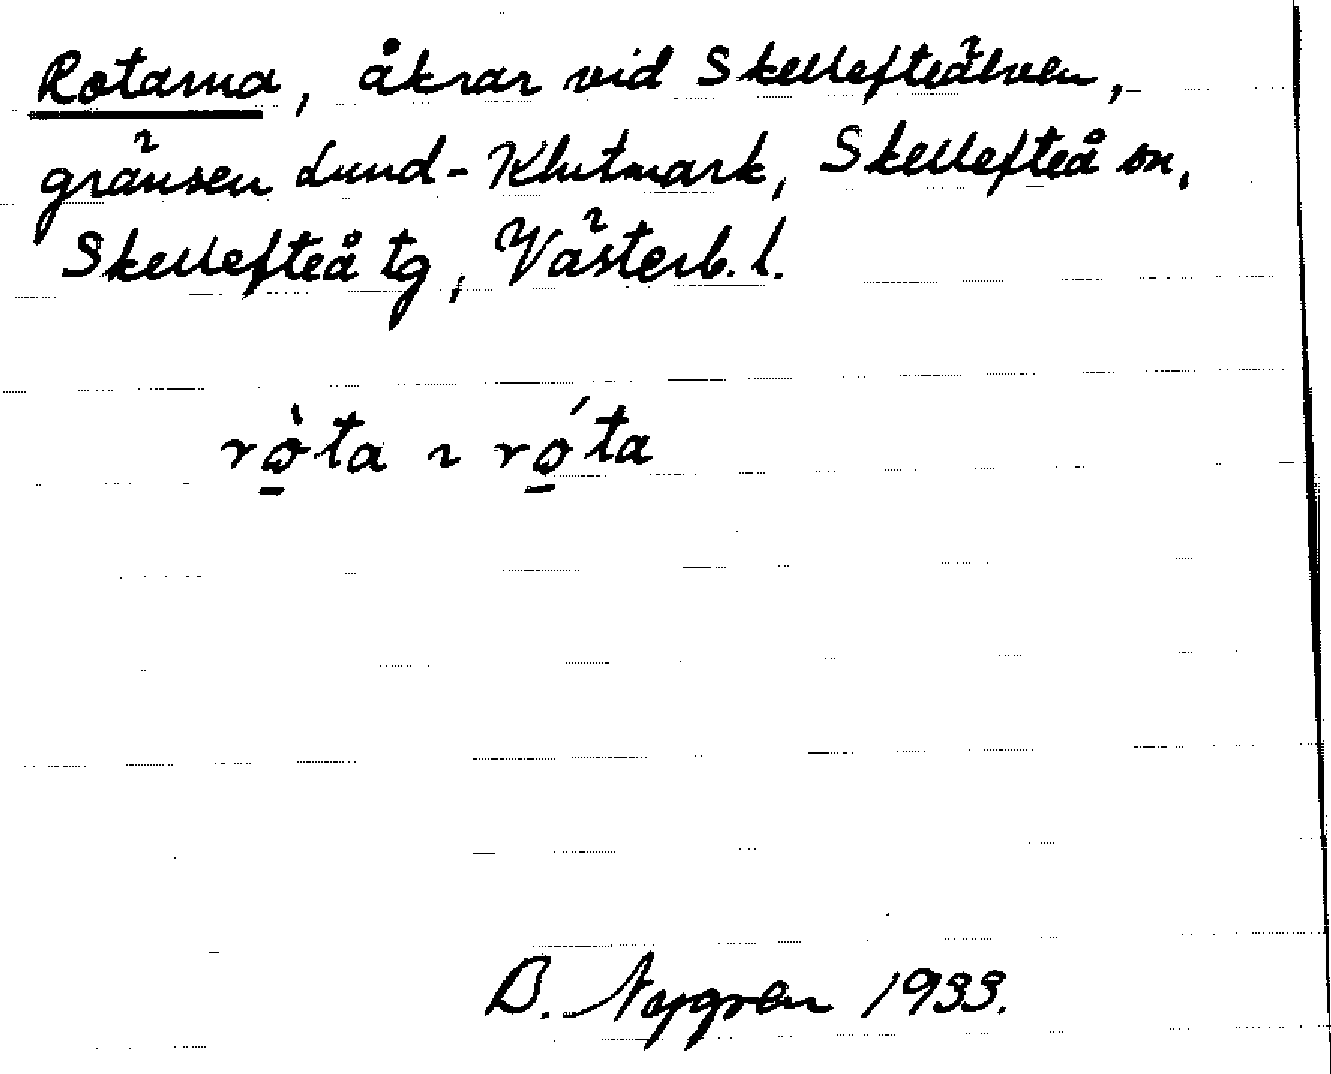 Rotarna, åkrar vid Skellefteälven,
gränsen Lund-Klutmark, Skellefteå sn,
Skellefteå tg, Västerb. l.
rò̱ta ~ ró̱ta
B. Nygren 1933.